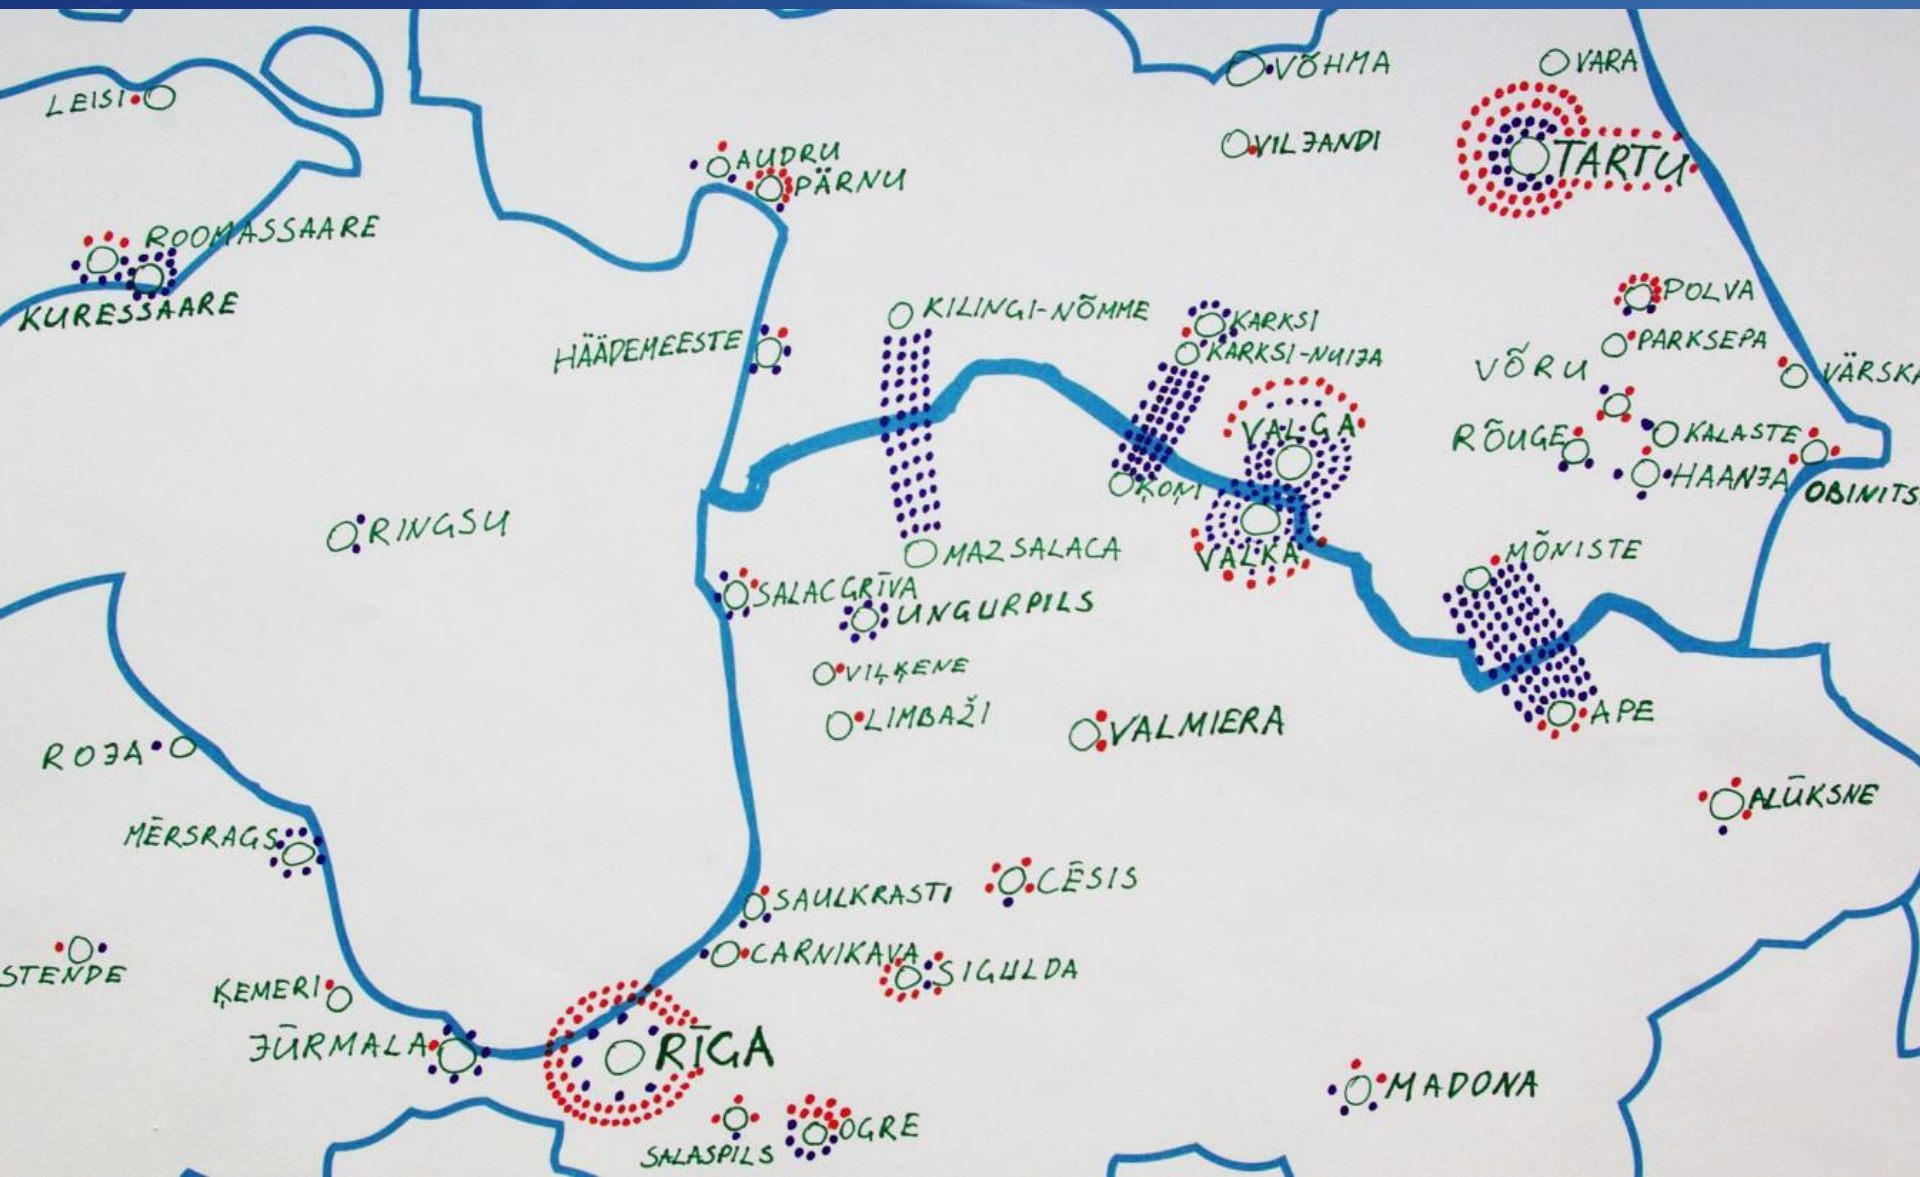 VÕHMA
VARA
LEISI
VILJANDI
TARTU
AUDRU
PÄRNU
ROOMASSAARE
KURESSAARE
HÄÄDEMEESTE
KILINGI-NÕMME
KARKSI
KARKSI-NUIJA
POLVA
PARKSEPA
VÕRU
VÄRSKA
VALGA
RÕUGE
KALASTE
HAANJA
OBINITS
ĶOŅI
RINGSU
MAZSALACA
VALKA
MÕNISTE
SALACGRĪVA
UNGURPILS
VIĻĶENE
LIMBAŽI
VALMIERA
APE
ROJA
ALŪKSNE
MĒRSRAGS
SAULKRASTI
CĒSIS
CARNIKAVA
SIGULDA
STENDE
ĶEMERI
JŪRMALA
RĪGA
MADONA
OGRE
SALASPILS